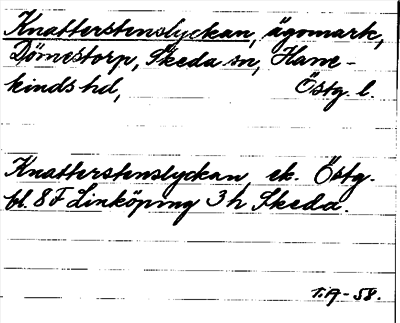 Knatterstenslyckan, ägomark,
Dömestorp, Skeda sn, Hane-
kinds hd, Östg. l.
Knatterstenslyckan, ek. Östg.
bl. 8 F Linköping 3 h Skeda.
T.A-58.